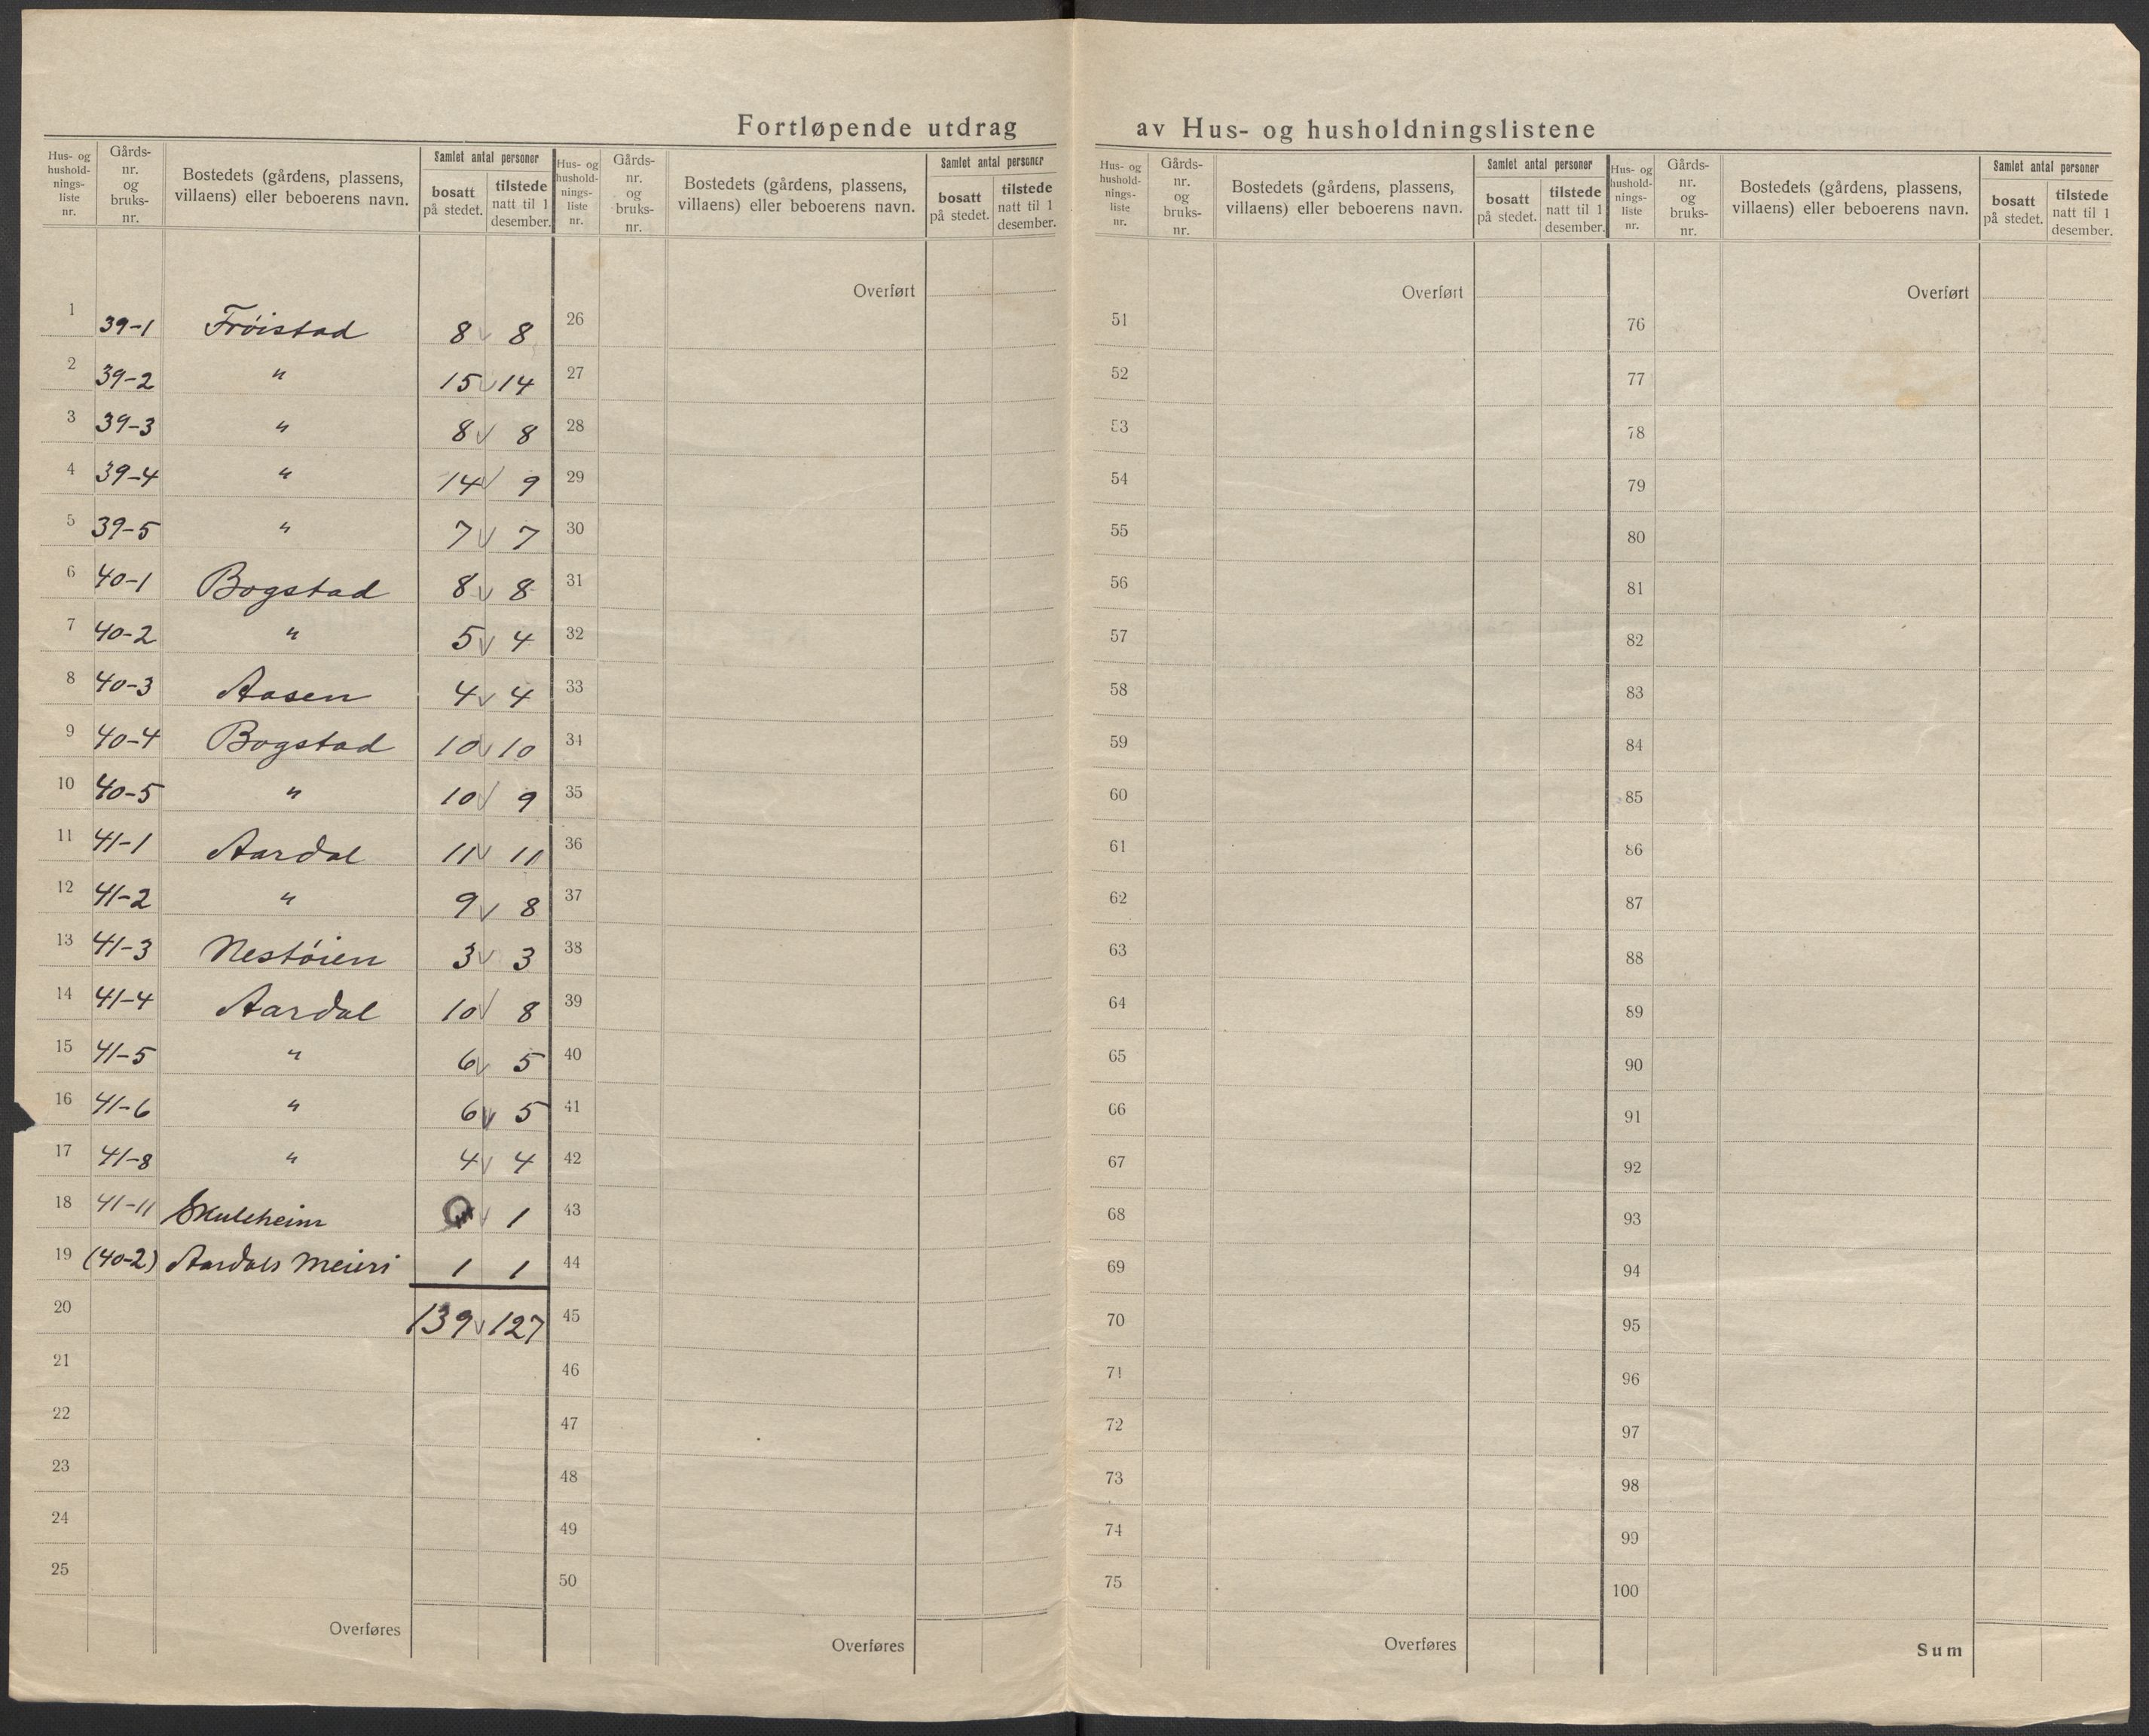 Fortløpende utdrag av Hus- og husholdningslistene
Hus- og hushold-nings-liste nr. Gårds-nr. og bruks-nr. Bostedets (gårdens, plassens, villaens) eller beboerens navn. Samlet antal personer bosatt på stedet. tilstede natt til 1 desember.
1 39-1 Frøistad 8 v 8
2 39-2 " 15 v 14
3 39-3 " 8 v 8
4 39-4 " 14 v 9
5 39-5 " 7 v 7
6 40-1 Bogstad 8 v 8
7 40-2 " 5 v 4
8 40-3 Aasen 4 v 4
9 40-4 Bogstad 10 v 10
10 40-5 " 10 v 9
11 41-1 Aardal 11 v 11
12 41-2 " 9 v 8
13 41-3 Nestøien 3 v 3
14 41-4 Aardal 10 v 8
15 41-5 " 6 v 5
16 41-6 " 6 v 5
17 41-8 " 4 v 4
18 41-11 Skuleheim 0 v 1
19 (40-2) Aardals Meieri 1 1
20 139 v 127
21
22
23
24
25
Overføres
Hus- og hushold-nings-liste nr. Gårds-nr. og bruks-nr. Bostedets (gårdens, plassens, villaens) eller beboerens navn. Samlet antal personer bosatt på stedet. tilstede natt til 1 desember.
Overført
26
27
28
29
30
31
32
33
34
35
36
37
38
39
40
41
42
43
44
45
46
47
48
49
50
Overføres
Hus- og hushold-nings-liste nr. Gårds-nr. og bruks-nr. Bostedets (gårdens, plassens, villaens) eller beboerens navn. Samlet antal personer bosatt på stedet. tilstede natt til 1 desember.
Overført
51
52
53
54
55
56
57
58
59
60
61
62
63
64
65
66
67
68
69
70
71
72
73
74
75
Overføres
Hus- og hushold-nings-liste nr. Gårds-nr. og bruks-nr. Bostedets (gårdens, plassens, villaens) eller beboerens navn. Samlet antal personer bosatt på stedet. tilstede natt til 1 desember.
Overført
76
77
78
79
80
81
82
83
84
85
86
87
88
89
90
91
92
93
94
95
96
97
98
99
100
Sum